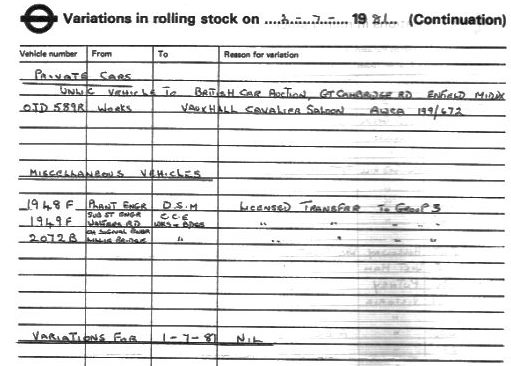 Variations in rolling stock on 2-7- 1981 (Continuation)
Vehicle number From To Reason for variation
PRIVATE CARS
UNLIC VEHICLE TO BRITISH CAR AUCTION, GT CAMBRIDGE RD ENFIELD MIDDX
OJD 589R WORKS VAUXHALL CAVALIER SALOON AWCA 199/672
MISCELLANEOUS VEHICLES
1948 F PLANT ENGR D.S.M LICENSED TRANSFER TO GROUP 3
1949 F SUB ST ENGR RD C.C.E WKS & BDGS " " " "
2072 B CH SIGNAL ENGR LILLIE BRIDGE " " " " "
VARIATIONS FOR 1-7-81 NIL